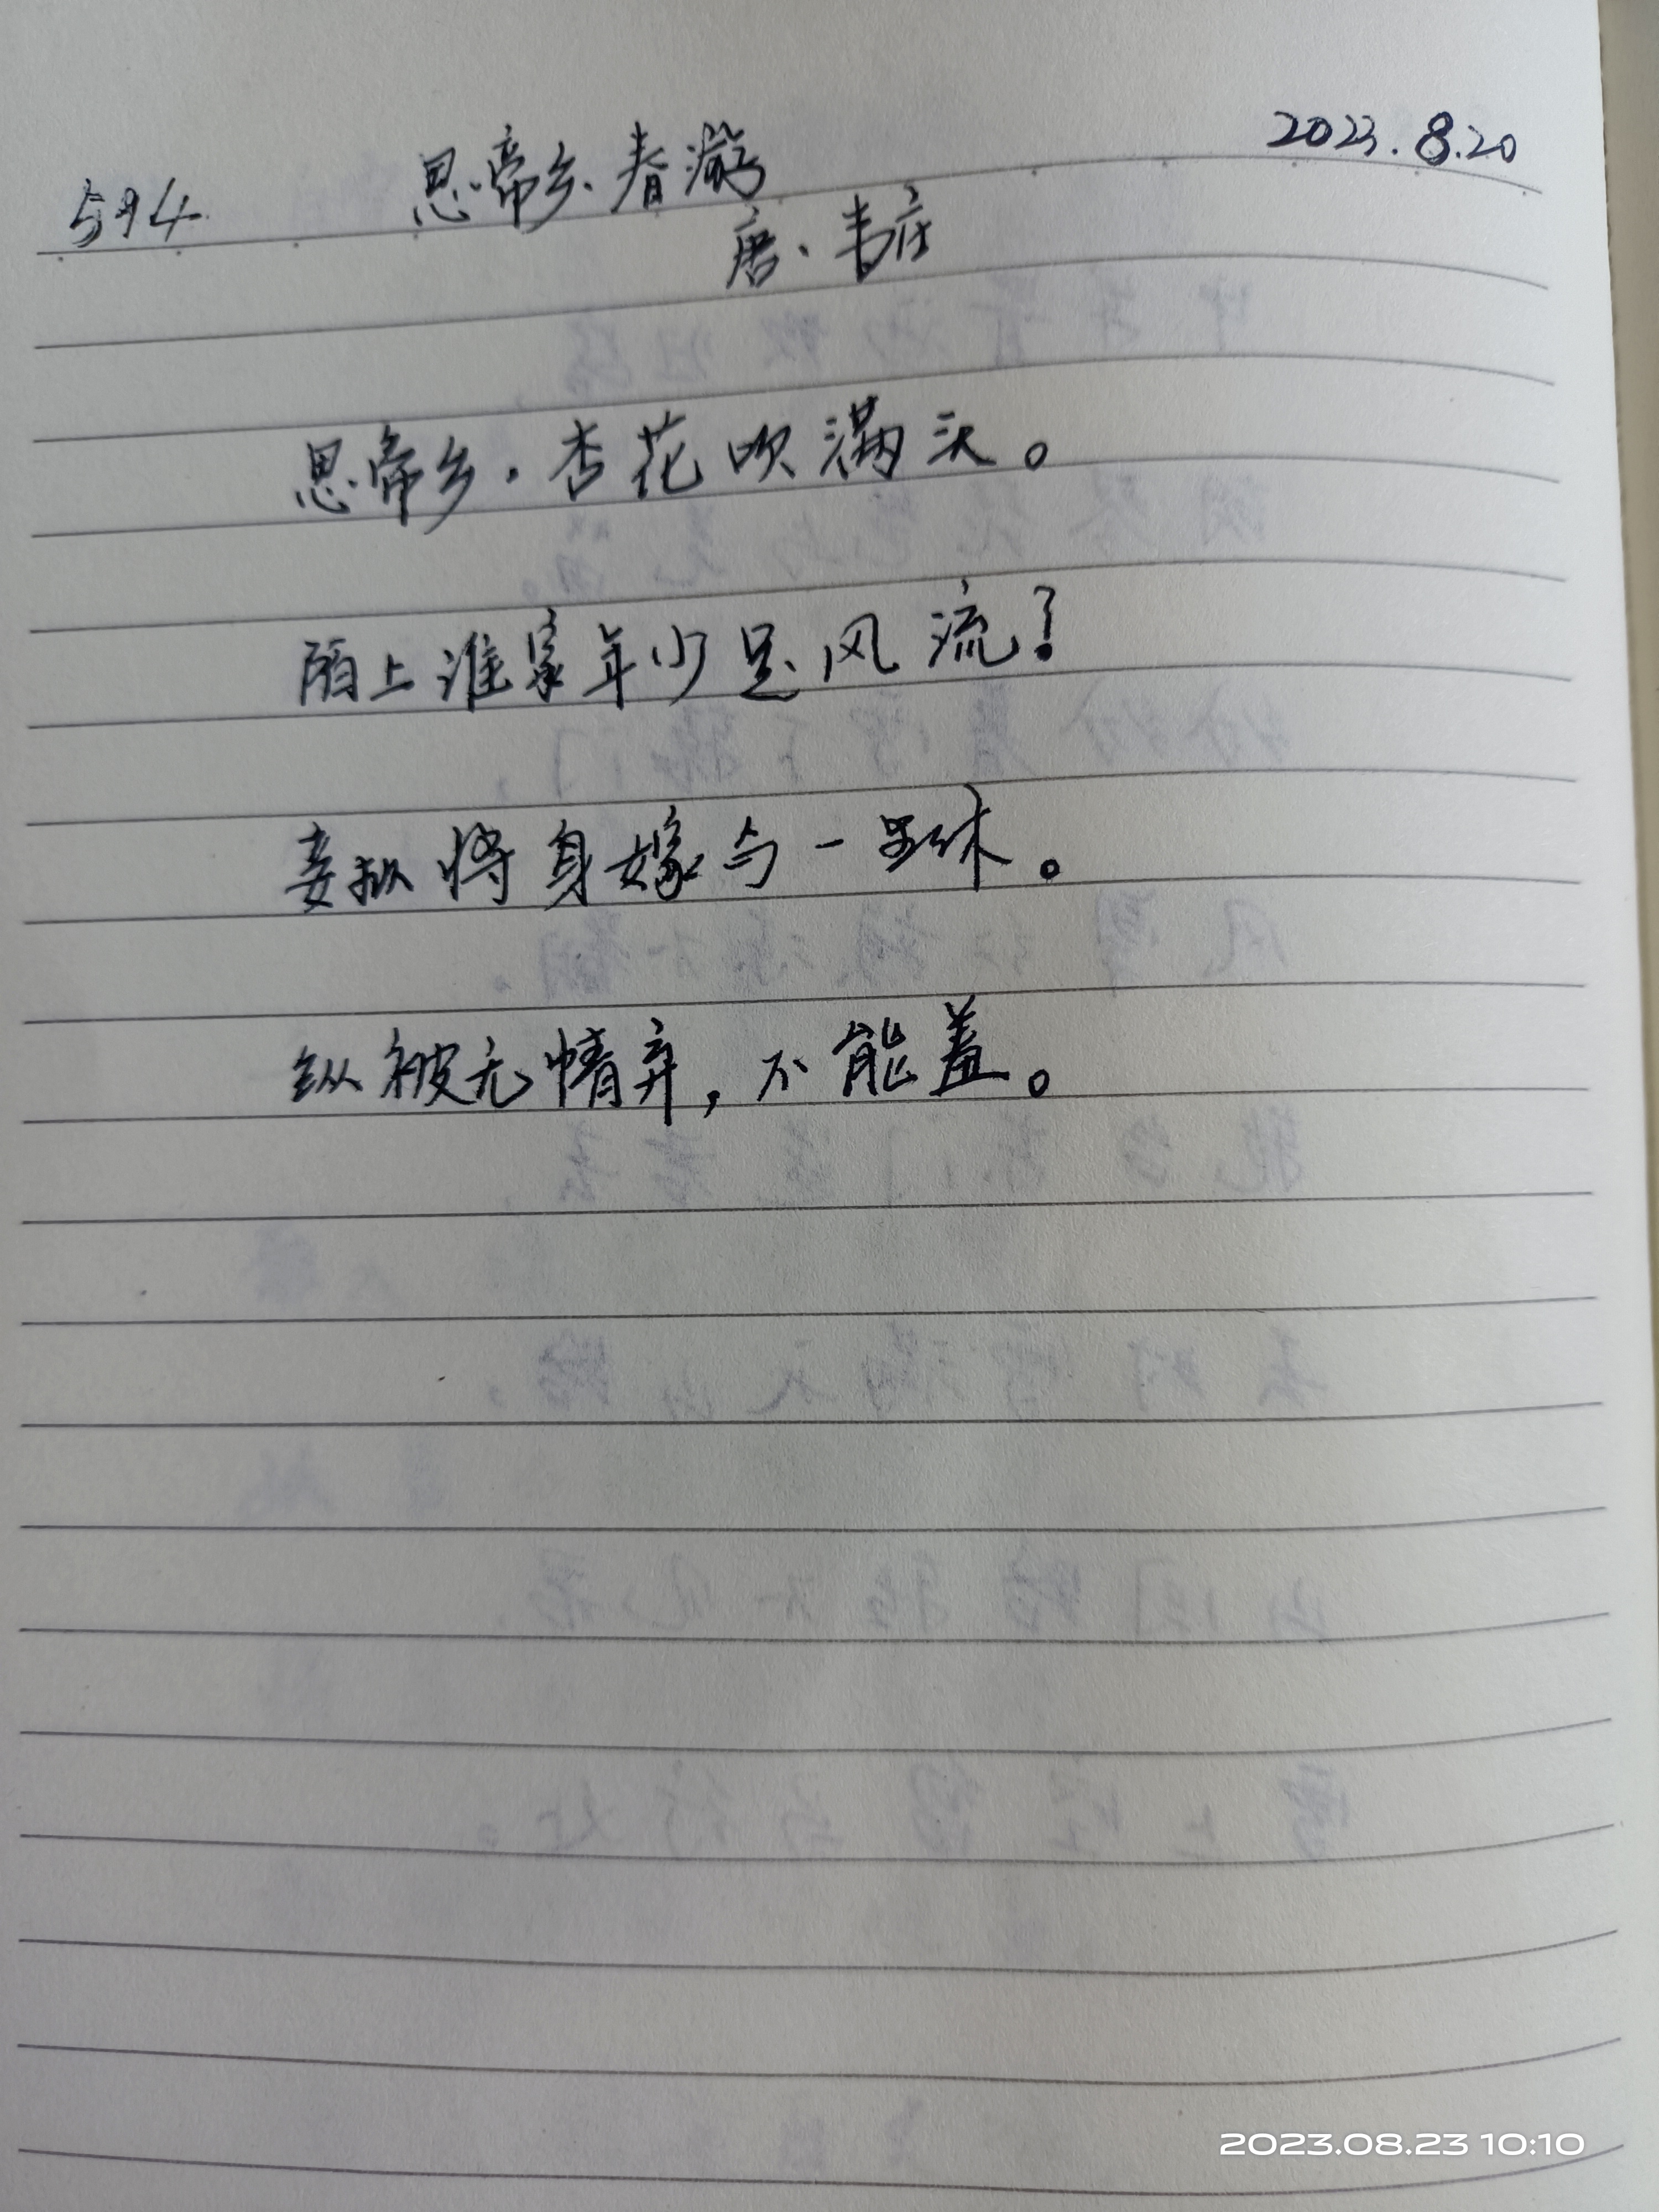 2023.8.20
594 思帝乡·春游
唐·韦庄
思帝乡·杏花吹满头。
陌上谁家年少足风流？
妾拟将身嫁与一生休。
纵被无情弃，不能羞。
2023.08.23 10:10